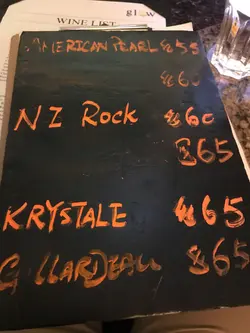 glow
WINE LIST
AMERICAN PEARL $55
$60
NZ Rock $60
$65
KRYSTALE $65
GILLARDEAU $65